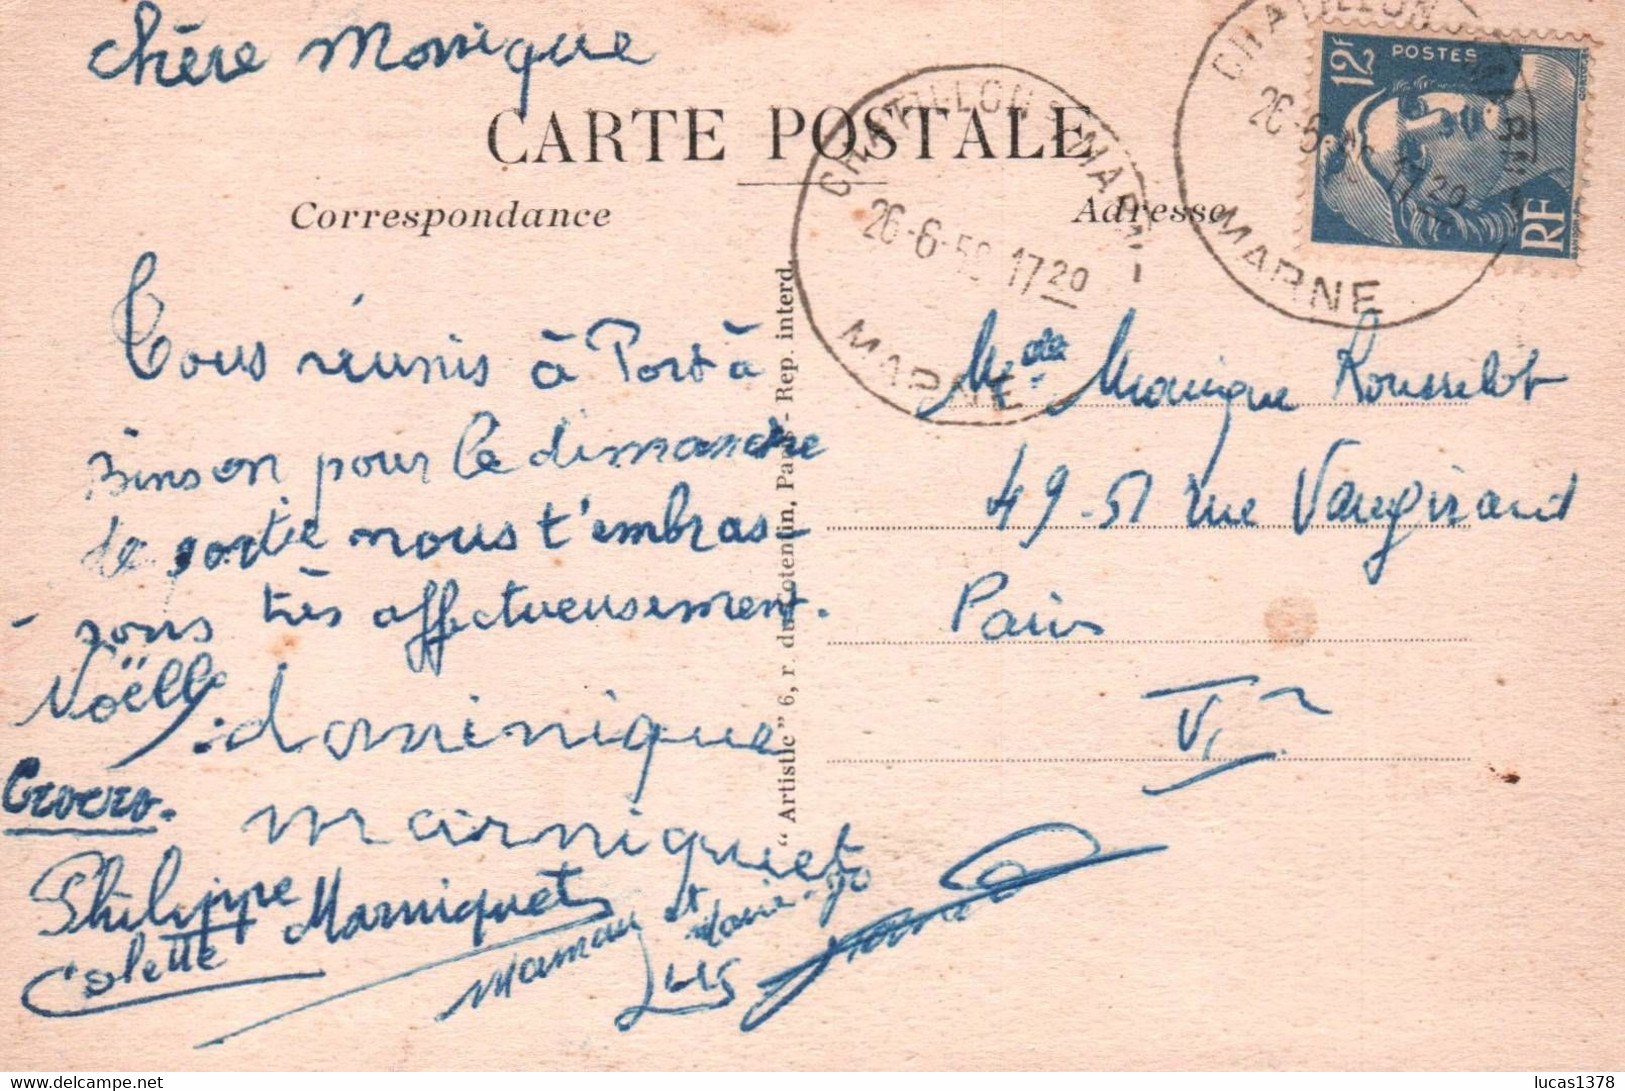 chère Monique
CARTE POSTALE
Correspondance
Adresse
CHATILLON S MARNE
26-6-50 17 20
MARNE
CHATILLON S MARNE
26-6-50 17 20
MARNE
12F
POSTES
RF
Tous réunis à Port à
Binson pour le dimanche
de sortie nous t'embras-
- sons très affectueusement.
Noëlle
dominique
Crocro.
marniquet
Philippe
Colette Marniquet
Maman et
Marie-Jo
Luis
Melle Monique Rousselot
49-51 rue Vaugirard
Paris
VI
"Artistic" 6, r. du Cotentin, Paris - Rep. interd.
lucas1378